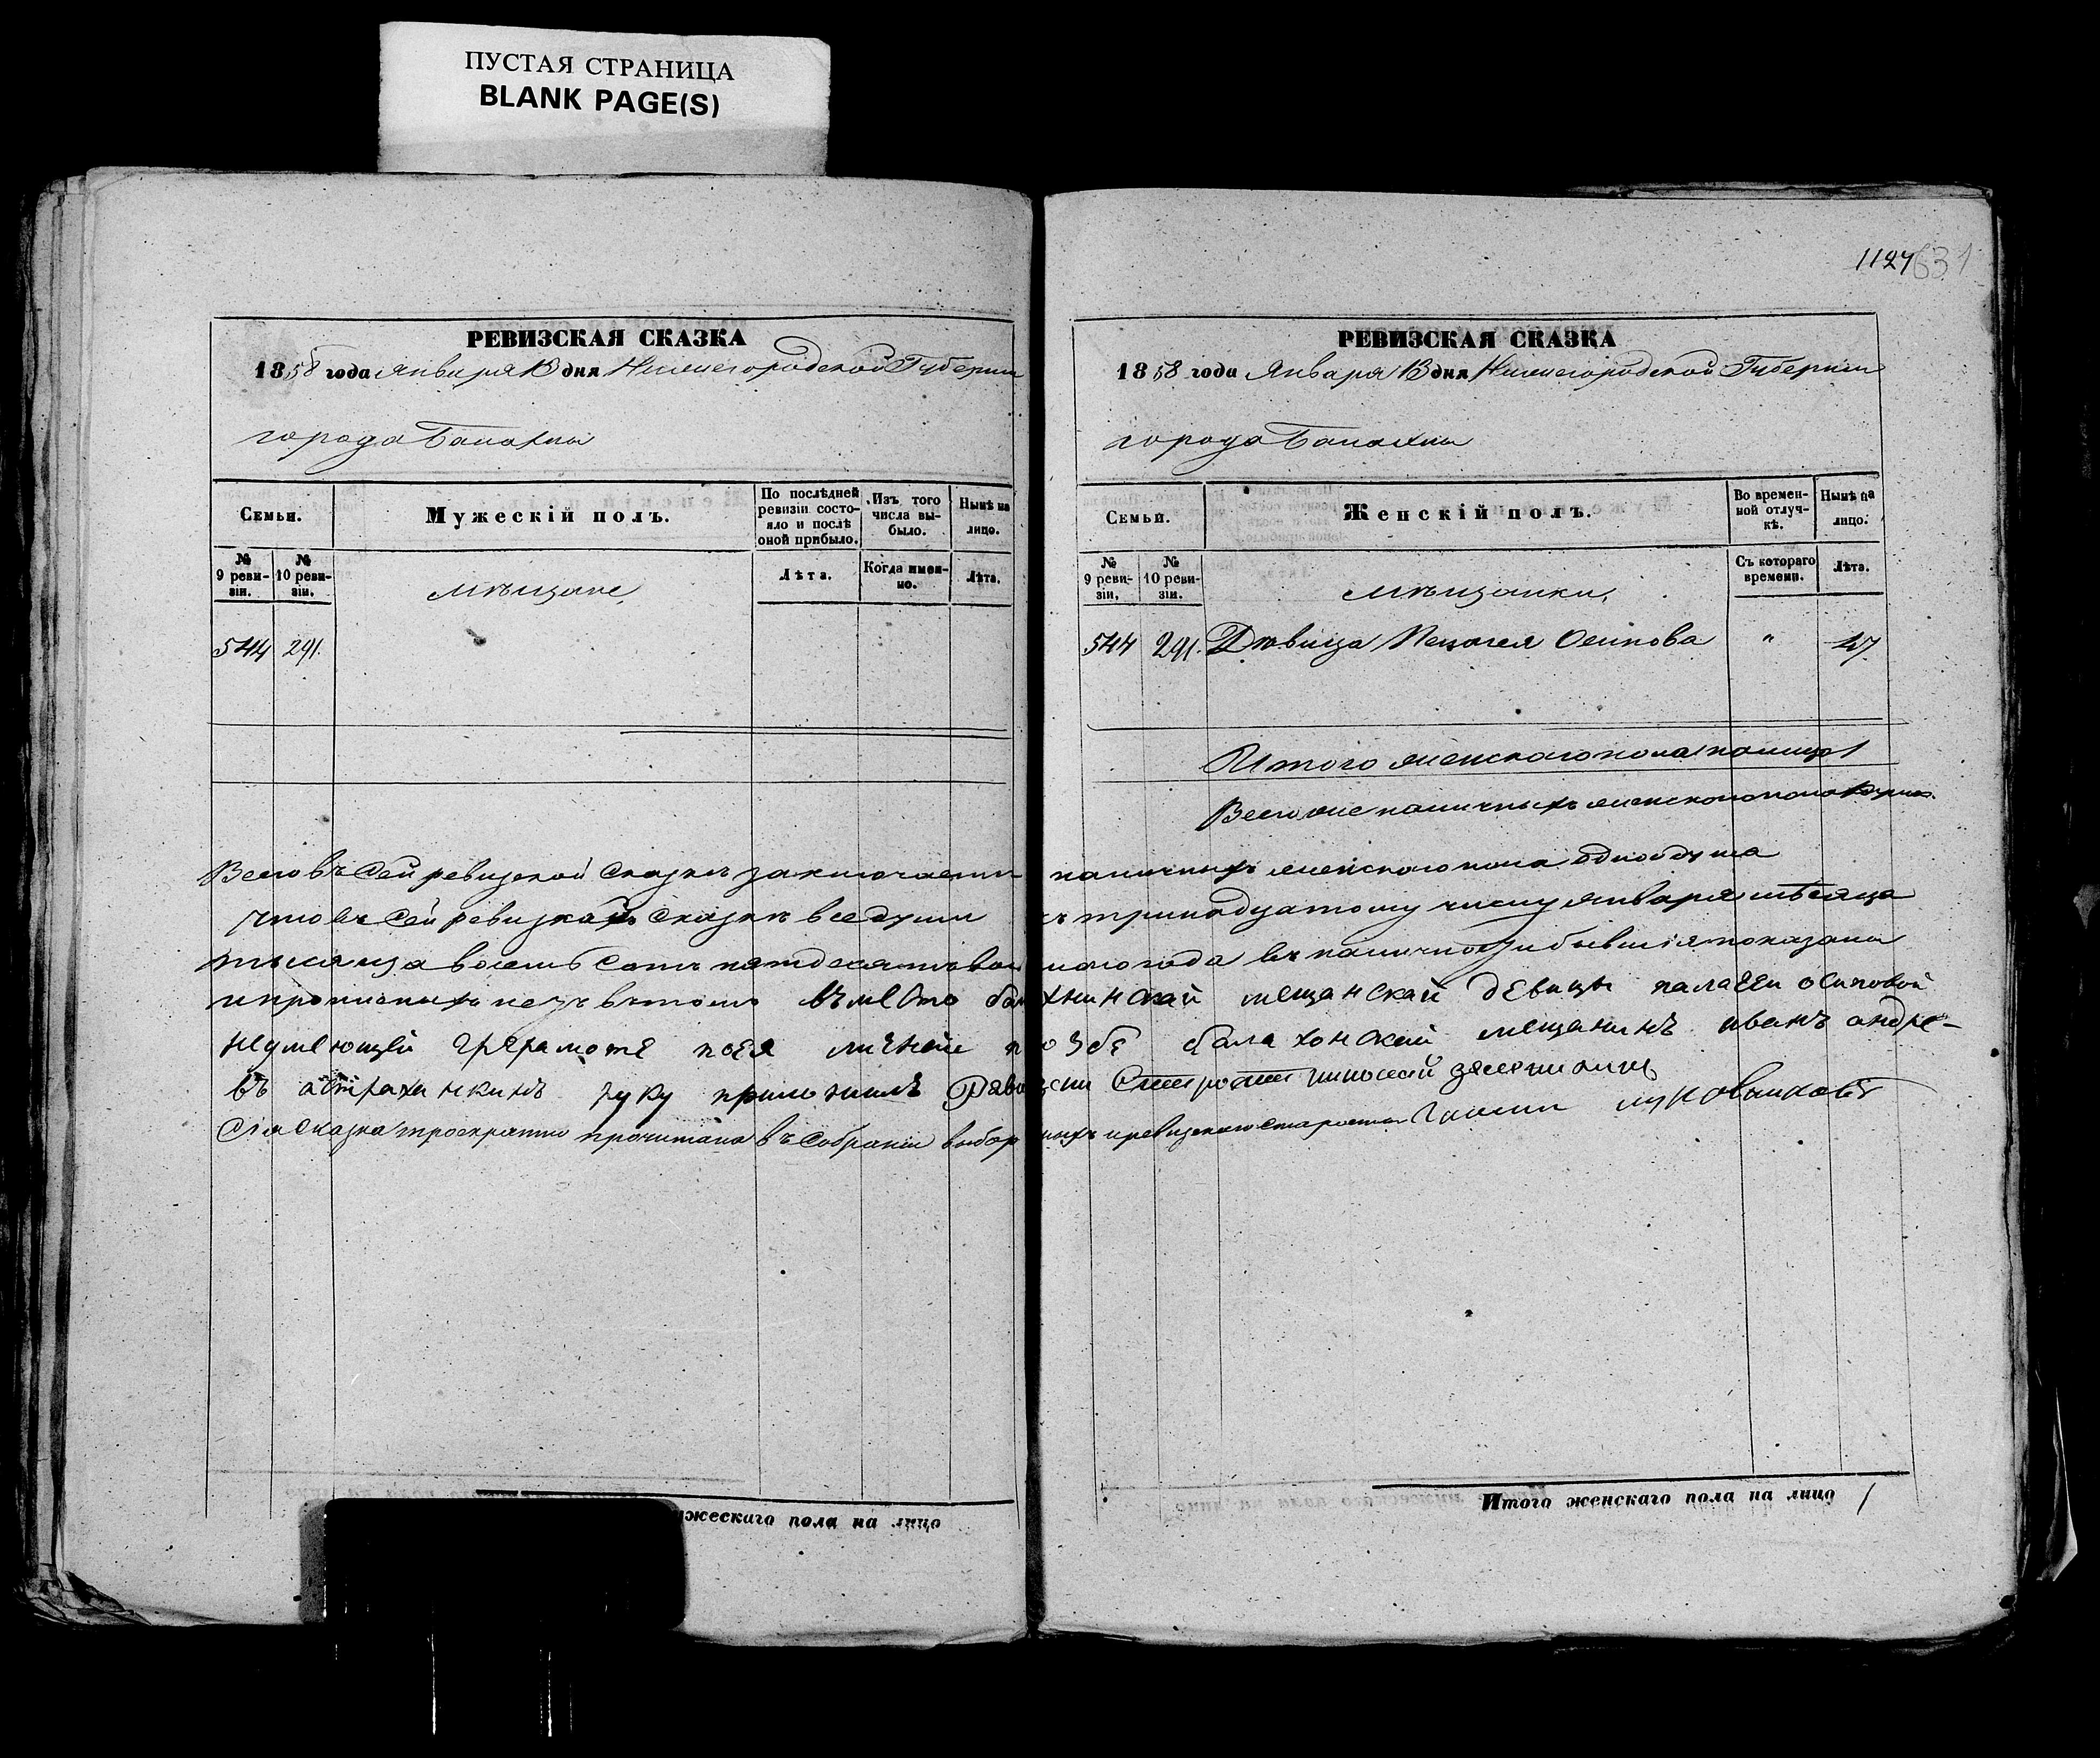 ПУСТАЯ СТРАНИЦА
BLANK PAGE(S)
РЕВИЗСКАЯ СКАЗКА
1858 года Января 13 дня Нижегородской Губернии
города Балахны
Семьи.
Мужескій полъ.
По послѣдней ревизіи состояло и послѣ оной прибыло.
Изъ того числа выбыло.
Нынѣ на лицо.
№ 9 ревизіи.
№ 10 ревизіи.
мѣщане
Лѣта.
Когда именно.
Лѣта.
544 291.
1127 631
РЕВИЗСКАЯ СКАЗКА
1858 года Января 13 дня Нижегородской Губерніи
города Балахны
Семьи.
Женскій полъ.
Во временной отлучкѣ.
Нынѣ на лицо.
№ 9 ревизіи.
№ 10 ревизіи.
мѣщанки,
Съ котораго времени.
Лѣта.
544 291. Дѣвица Пелагея Осипова " 47
Итого женскаго пола налицо 1
Всего же наличныхъ женскаго пола
Всего въ сей ревизской сказкѣ заключается наличныхъ женскаго пола одна душа
что въ сей ревизской сказкѣ все души къ тринадцатому числу января мѣсяца
тысяча восемь сотъ пятдесятъ восьмаго года въ наличности бывшія показаны
и прописныхъ нетъ вътомъ въместо балахнинскай мещанскай девицы палагеи осиповой
неумеющей грерамоте поея личнои прозбе балахонскай мещанинъ иванъ андре-
въ астраханкинъ руку приложилъ
Сія Сказка троекратно прочитана въ Собраніи выборныхъ иревизскаго старосты
Итого мужескаго пола на лицо
Итого женскаго пола на лицо 1